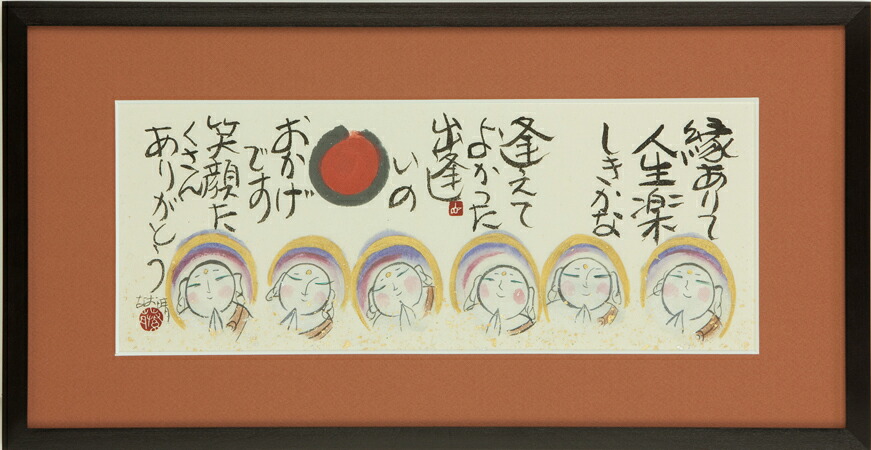 縁ありて
人生楽
しきかな
逢えて
よかった
出逢
いの
おかげ
です
笑顔た
くさん
ありがとう